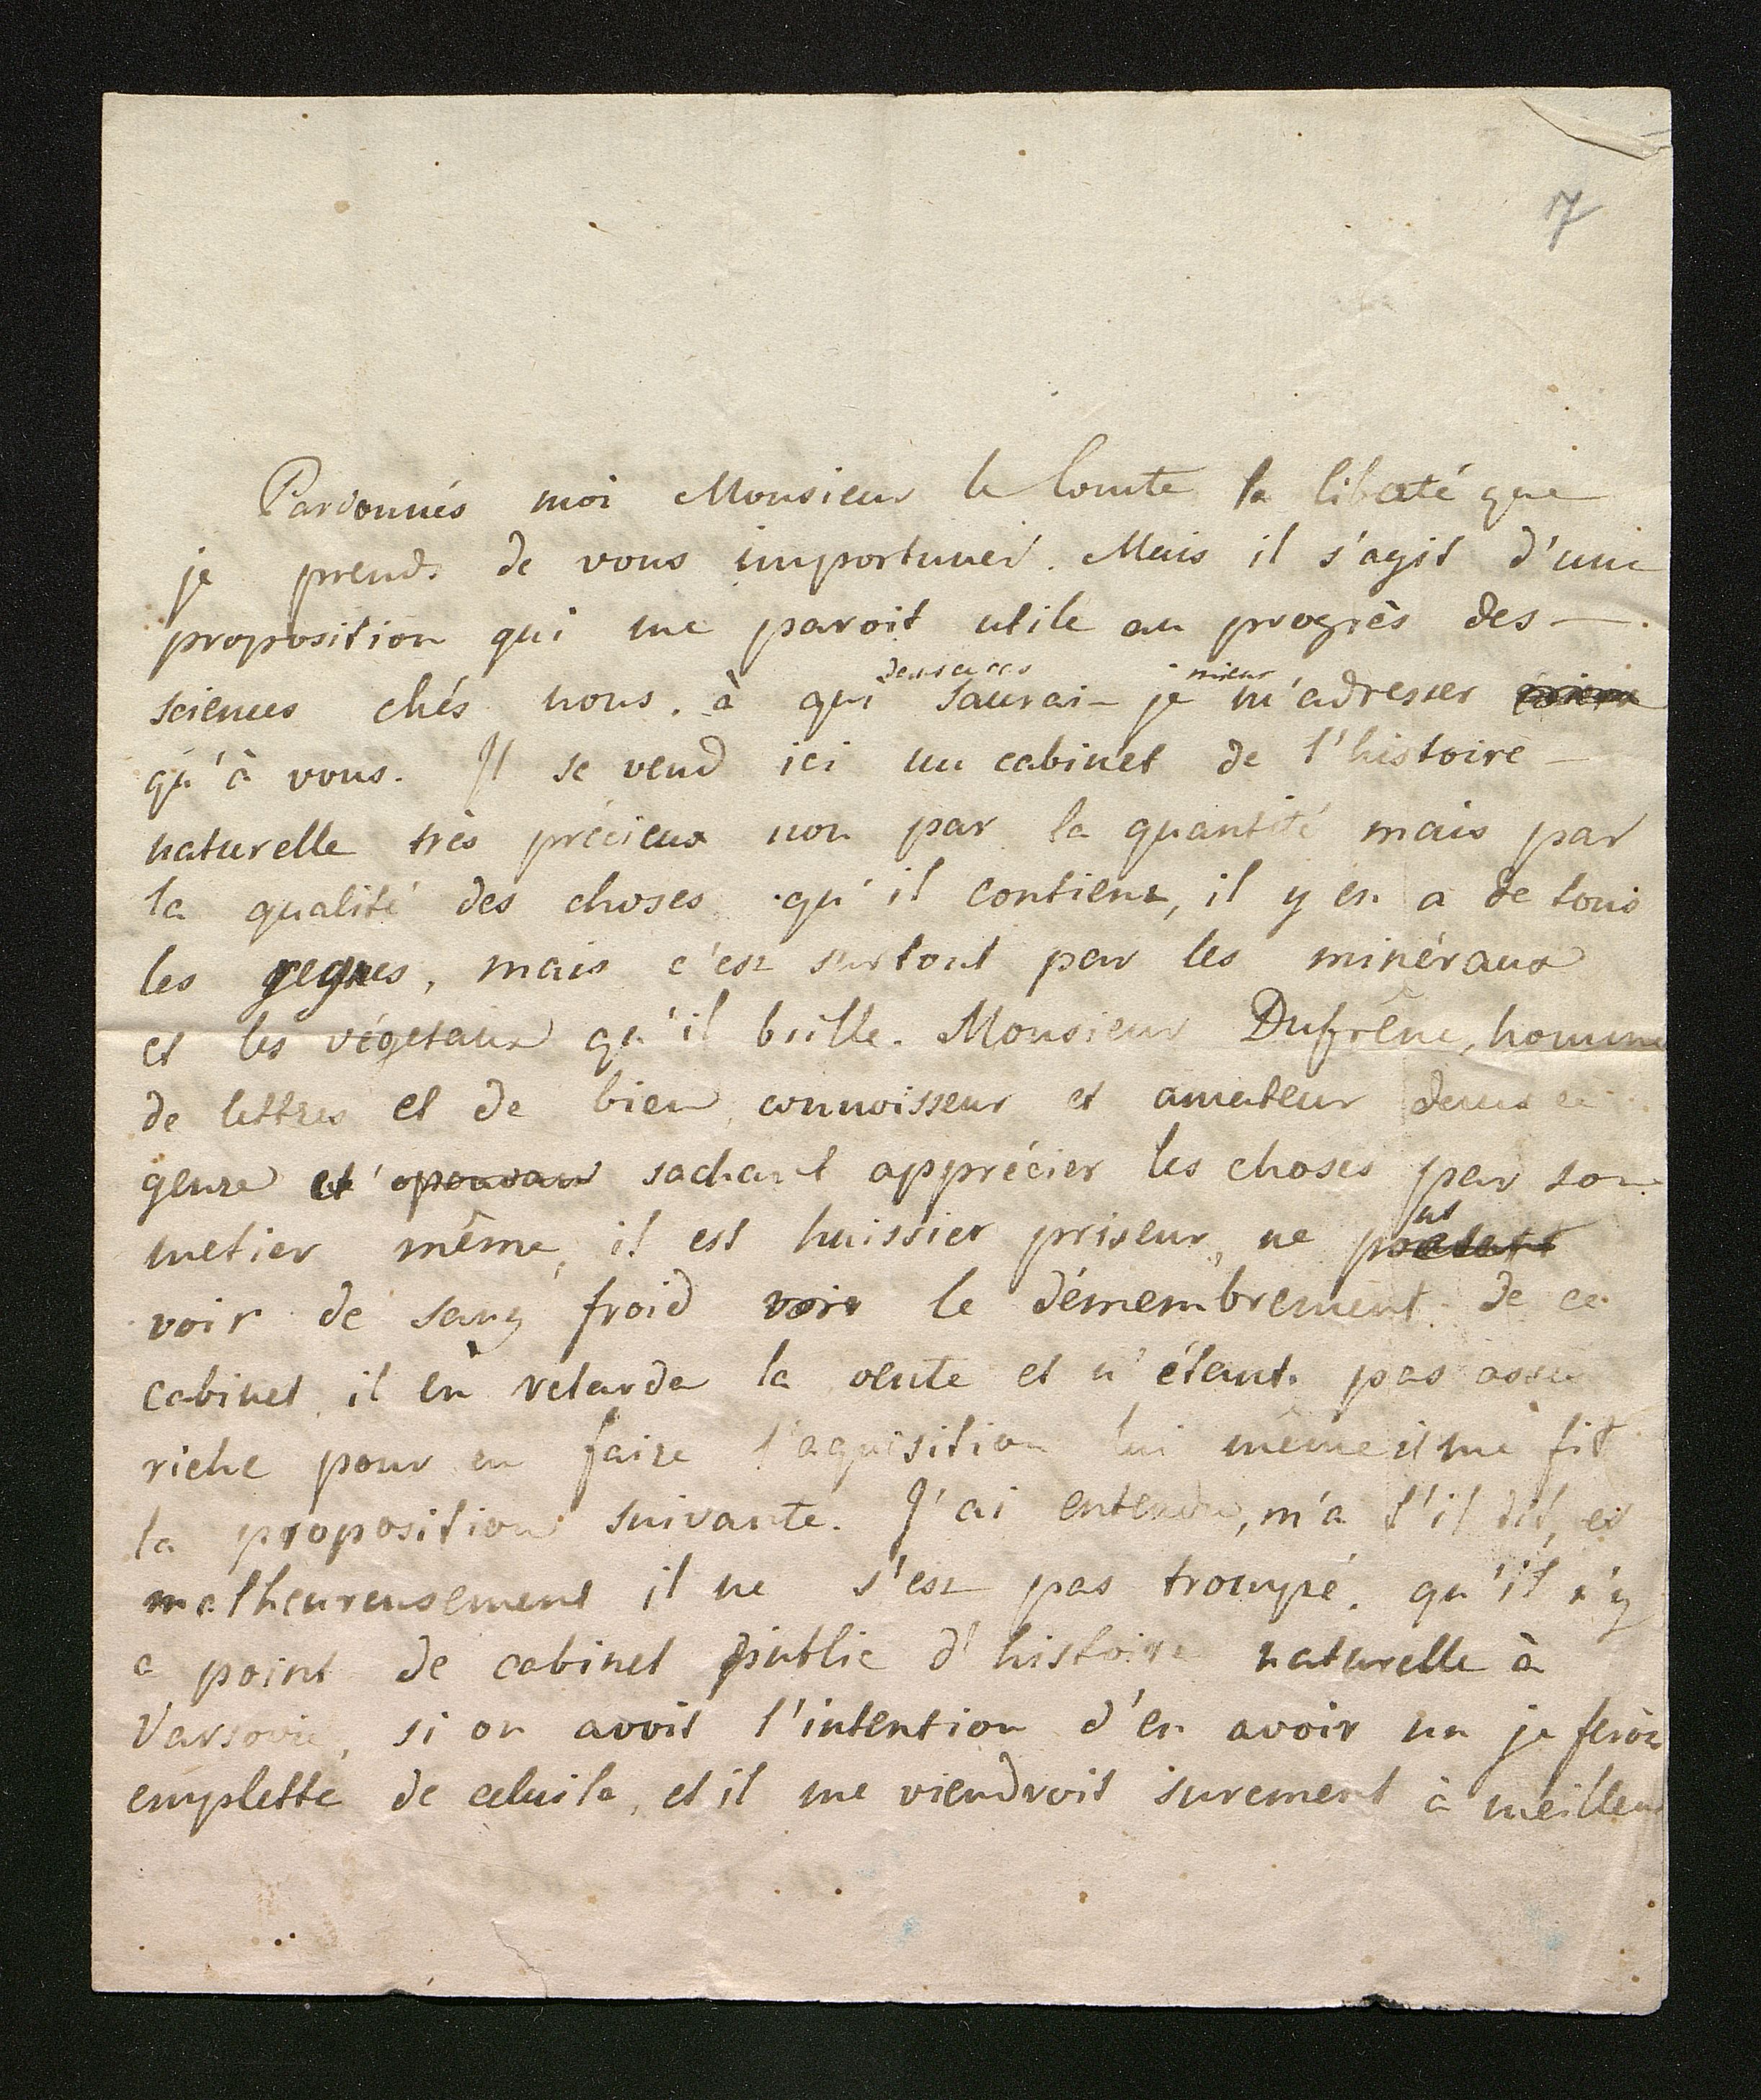 7
Pardonnés moi Monsieur le Comte la liberté que
je prends de vous importuner. Mais il s'agit d'une
proposition qui me paroit utile au progrès des —
dans ce cas mieux
sciences chés nous. à qui saurai-je m'adresser
qu'à vous. Il se vend ici un cabinet de l'histoire —
naturelle très précieux non par la quantité mais par
la qualité des choses qu'il contient, il y en a de tous
les regnes, mais c'est surtout par les minéraux
et les végetaux qu'il brille. Monsieur Dufrêne, homme
de lettres et de bien, connoisseur et amateur dans ce
genre et sachant apprécier les choses par son
metier même, il est huissier priseur, ne put
voir de sang froid voir le démembrement de ce
cabinet, il en retarda la vente et n'étant pas assés
riche pour en faire l'aquisition lui même il me fit
la proposition suivante. J'ai entendu, m'a t'il dit, et
malheureusement il ne s'est pas trompé, qu'il n'y
a point de cabinet public d'histoire naturelle à
Varsovie, si on avoit l'intention d'en avoir un je ferois
emplette de celuila, et il me viendroit surement à meilleur